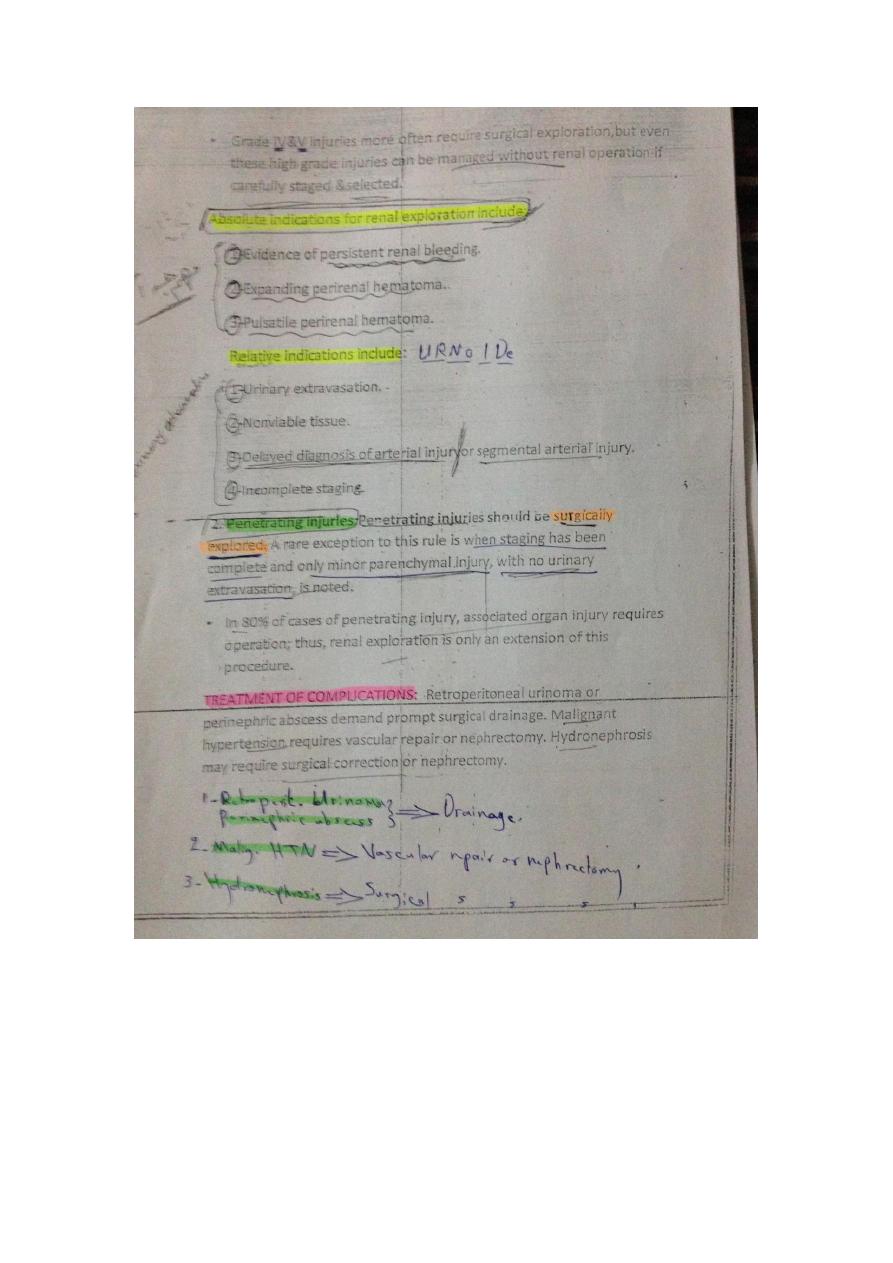 • Grade IV&V injuries more often require surgical exploration,but even
these high grade injuries can be managed without renal operation if
carefully staged &selected.
Absolute indications for renal exploration include:
1-Evidence of persistent renal bleeding.
2-Expanding perirenal hematoma..
3-Pulsatile perirenal hematoma.
Relative indications include: URNo I De
1-Urinary extravasation. -
2-Nonviable tissue.
3-Delayed diagnosis of arterial injury or segmental arterial injury.
4-Incomplete staging.
2. Penetrating injuries: Penetrating injuries should be surgically
explored. A rare exception to this rule is when staging has been
complete and only minor parenchymal injury, with no urinary
extravasation, is noted.
• In 80% of cases of penetrating injury, associated organ injury requires
operation; thus, renal exploration is only an extension of this
procedure.
TREATMENT OF COMPLICATIONS: Retroperitoneal urinoma or
perinephric abscess demand prompt surgical drainage. Malignant
hypertension requires vascular repair or nephrectomy. Hydronephrosis
may require surgical correction or nephrectomy.
1- Retropert. Urinoma
Perinephric abscess } => Drainage.
2- Malig. HTN => Vascular repair or nephrectomy.
3- Hydronephrosis => Surgical s s s